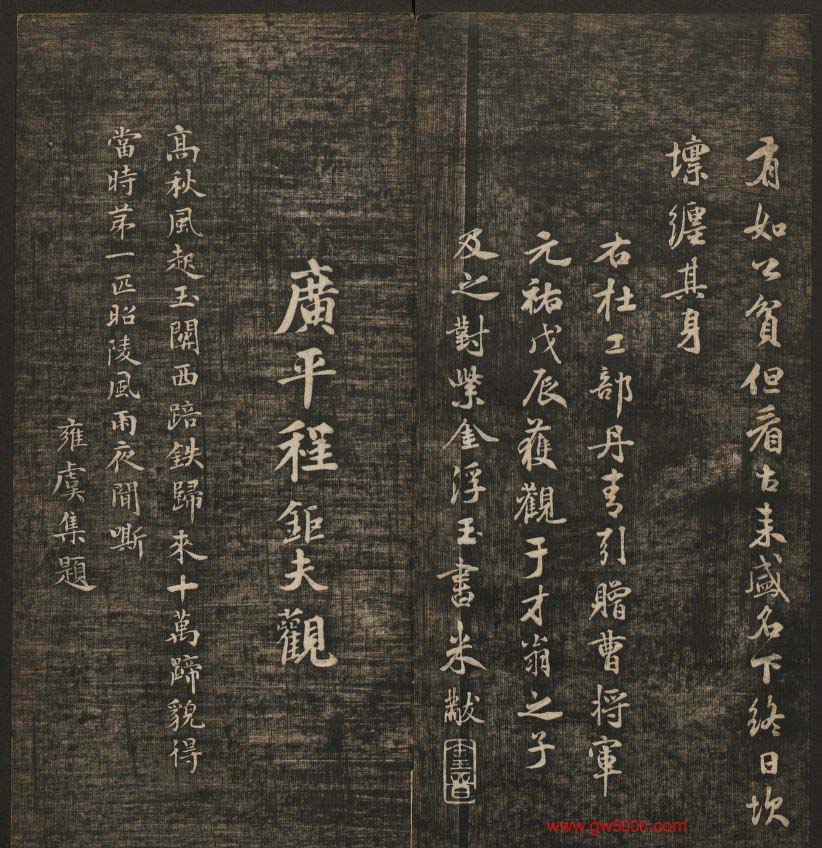 有如公貧但看古来盛名下終日坎
壈纏其身
右杜工部丹青引贈曹将軍
元祐戊辰獲觀于才翁之子
及之對紫金浮玉書米黻
廣平程鉅夫觀
高秋風起玉關西踣鉄歸來十萬蹄貌得
當時苐一匹昭陵風雨夜聞嘶
雍虞集題
www.gw5000.com